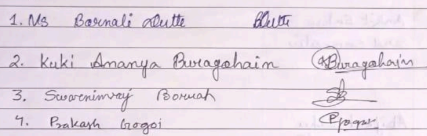 1. Ms Barnali Dutta Dutta
2. Kuki Ananya Buragohain KBuragohain
3. Boruah
4. Prakash Gogoi PGogoi